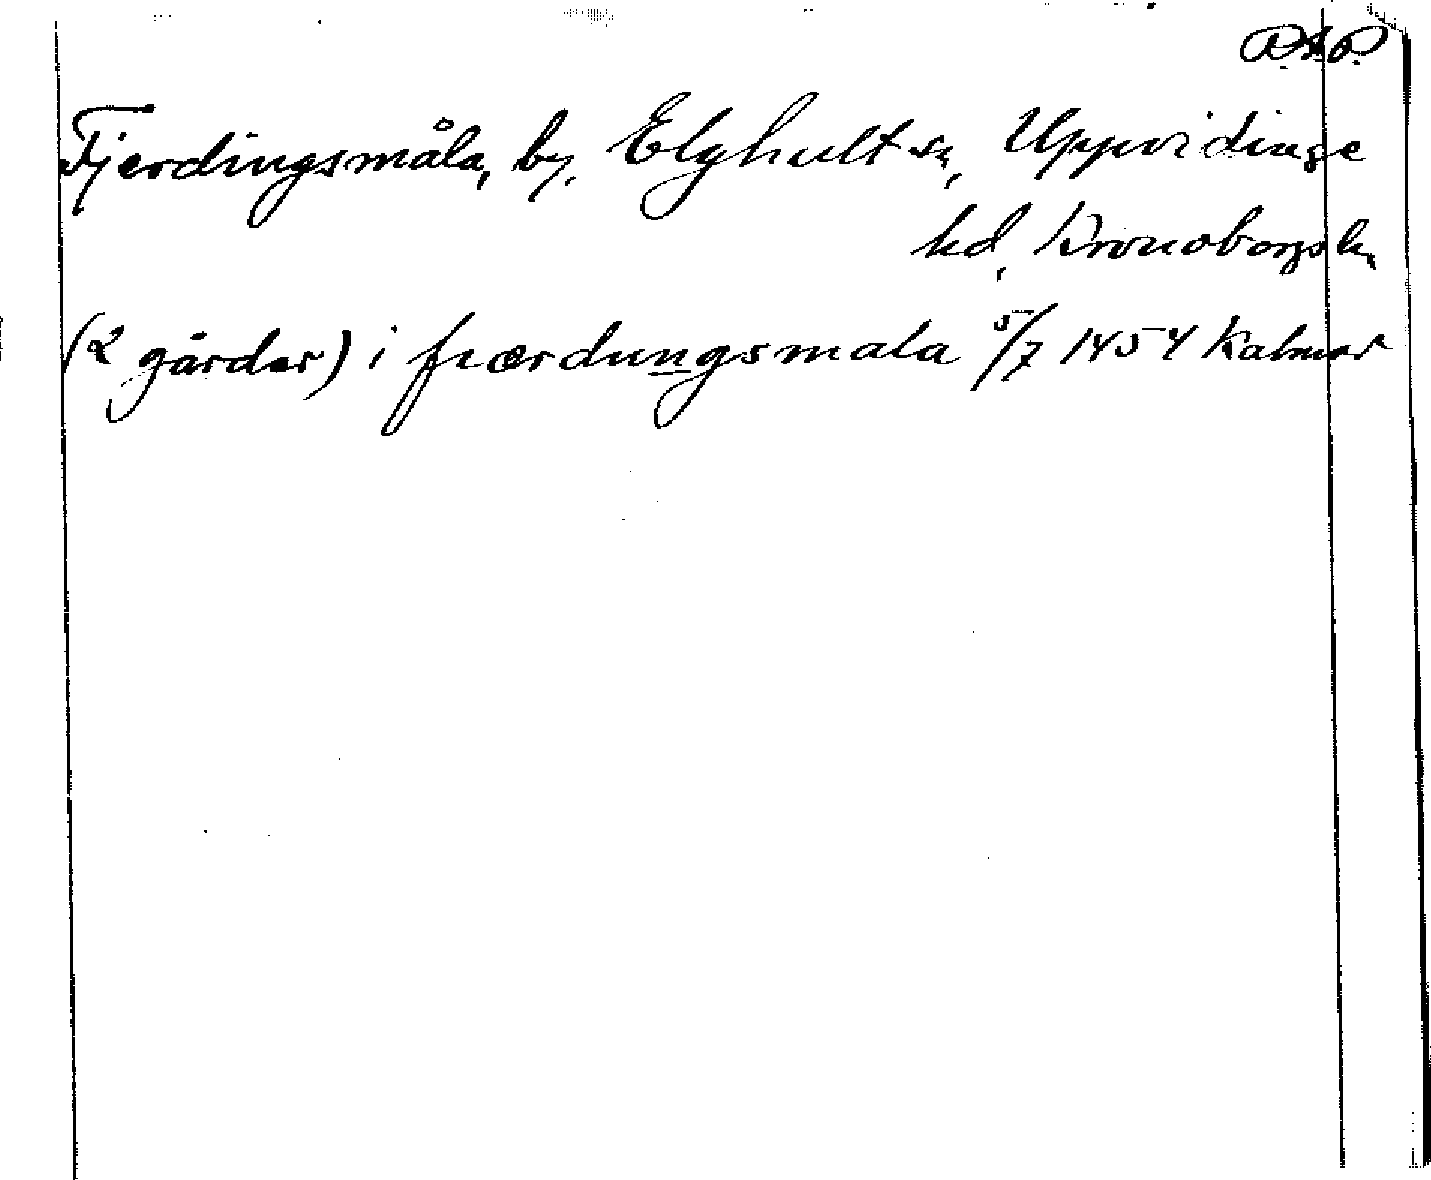 RAP.
Fjerdingsmåla, by, Elghult sn, Uppvidinge
hd, Kronobergs l.
(2 gårdar) i fiærdungsmala 5/7 1454 Kalmar